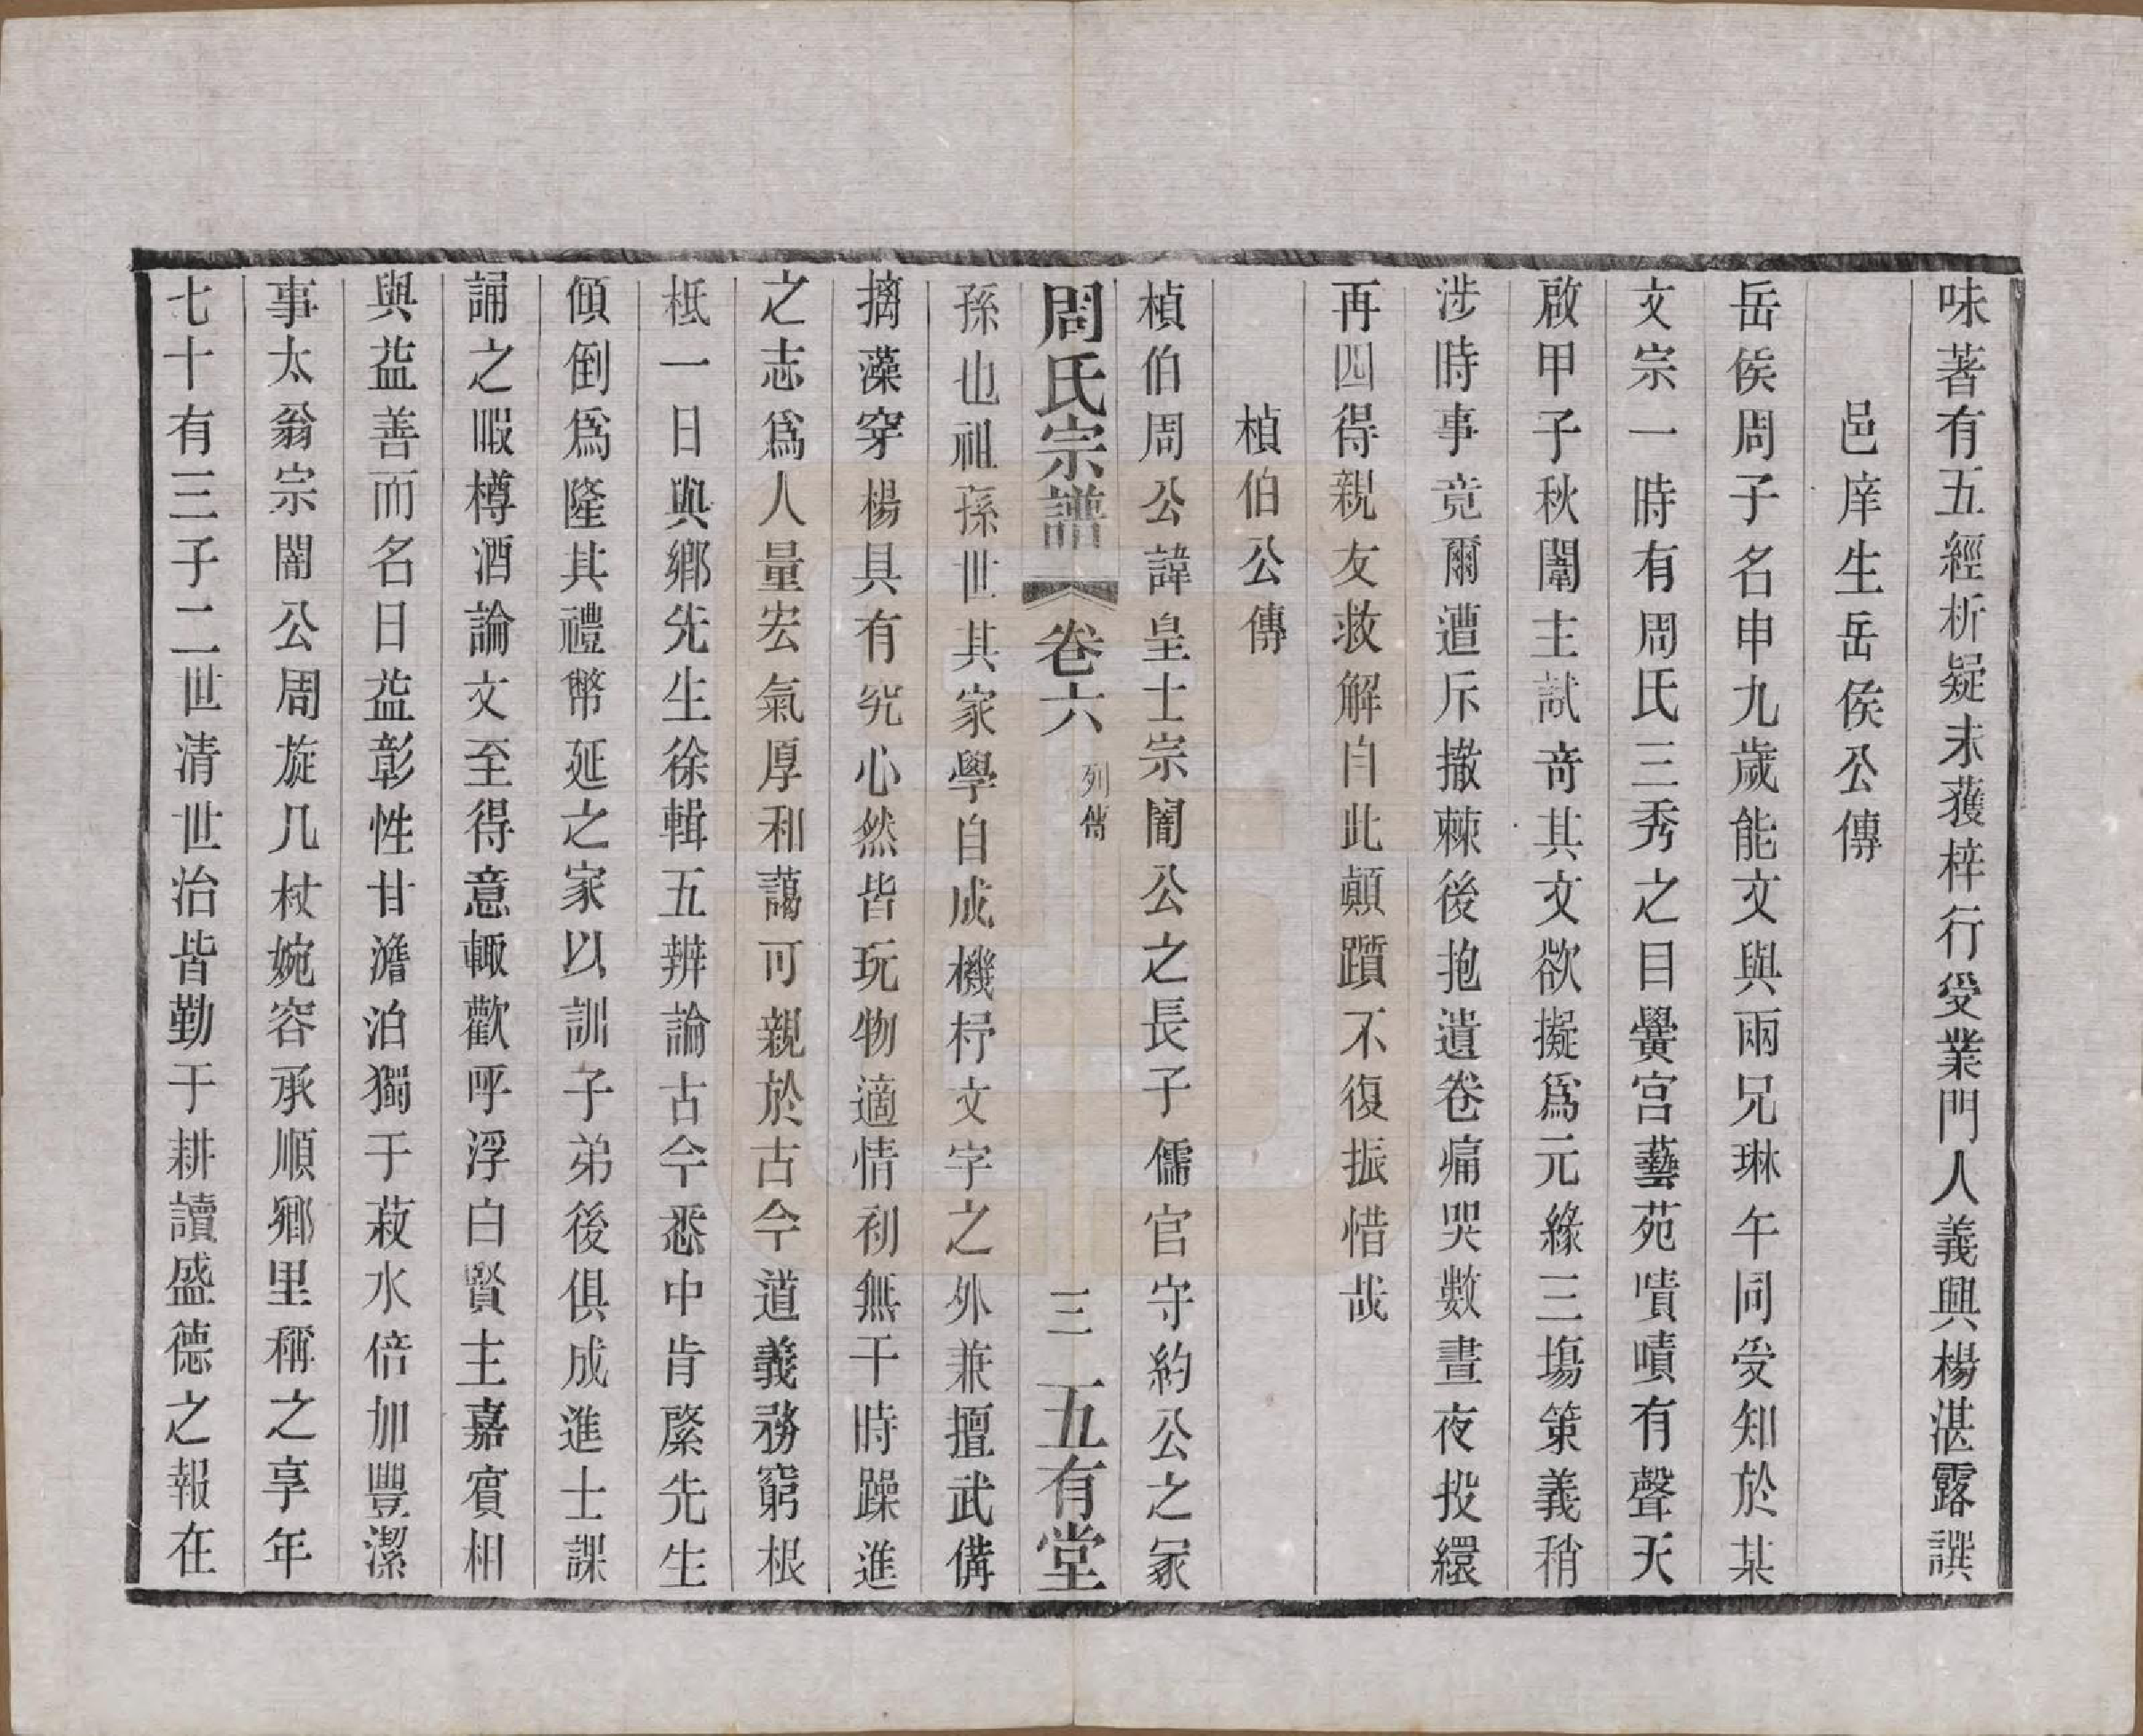 味著有五經析疑未獲梓行受業門人義興楊湛露譔
邑庠生岳侯公傳
岳侯周子名申九歲能文與兩兄琳午同受知於某
文宗一時有周氏三秀之目黌宮藝苑嘖嘖有聲天
啟甲子秋闈主試奇其文欲擬爲元緣三塲策義稍
涉時事竟爾遭斥撤棘後抱遺卷痛哭數晝夜投繯
再四得親友救解自此顛躓不復振惜哉
楨伯公傳
楨伯周公諱皇士宗闇公之長子儒官守約公之冡
周氏宗譜 卷六 列傳 三 五有堂
孫也祖孫世其家學自成機杼文字之外兼擅武備
摛藻穿楊具有究心然皆玩物適情初無干時躁進
之志爲人量宏氣厚和藹可親於古今道義務窮根
柢一日與鄉先生徐輯五辨論古今悉中肯綮先生
傾倒爲隆其禮幣延之家以訓子弟後俱成進士課
誦之暇樽酒論文至得意輙歡呼浮白賢主嘉賓相
與益善而名日益彰性甘澹泊獨于菽水倍加豐潔
事太翁宗闇公周旋几杖婉容承順鄉里稱之享年
七十有三子二世清世治皆勤于耕讀盛德之報在